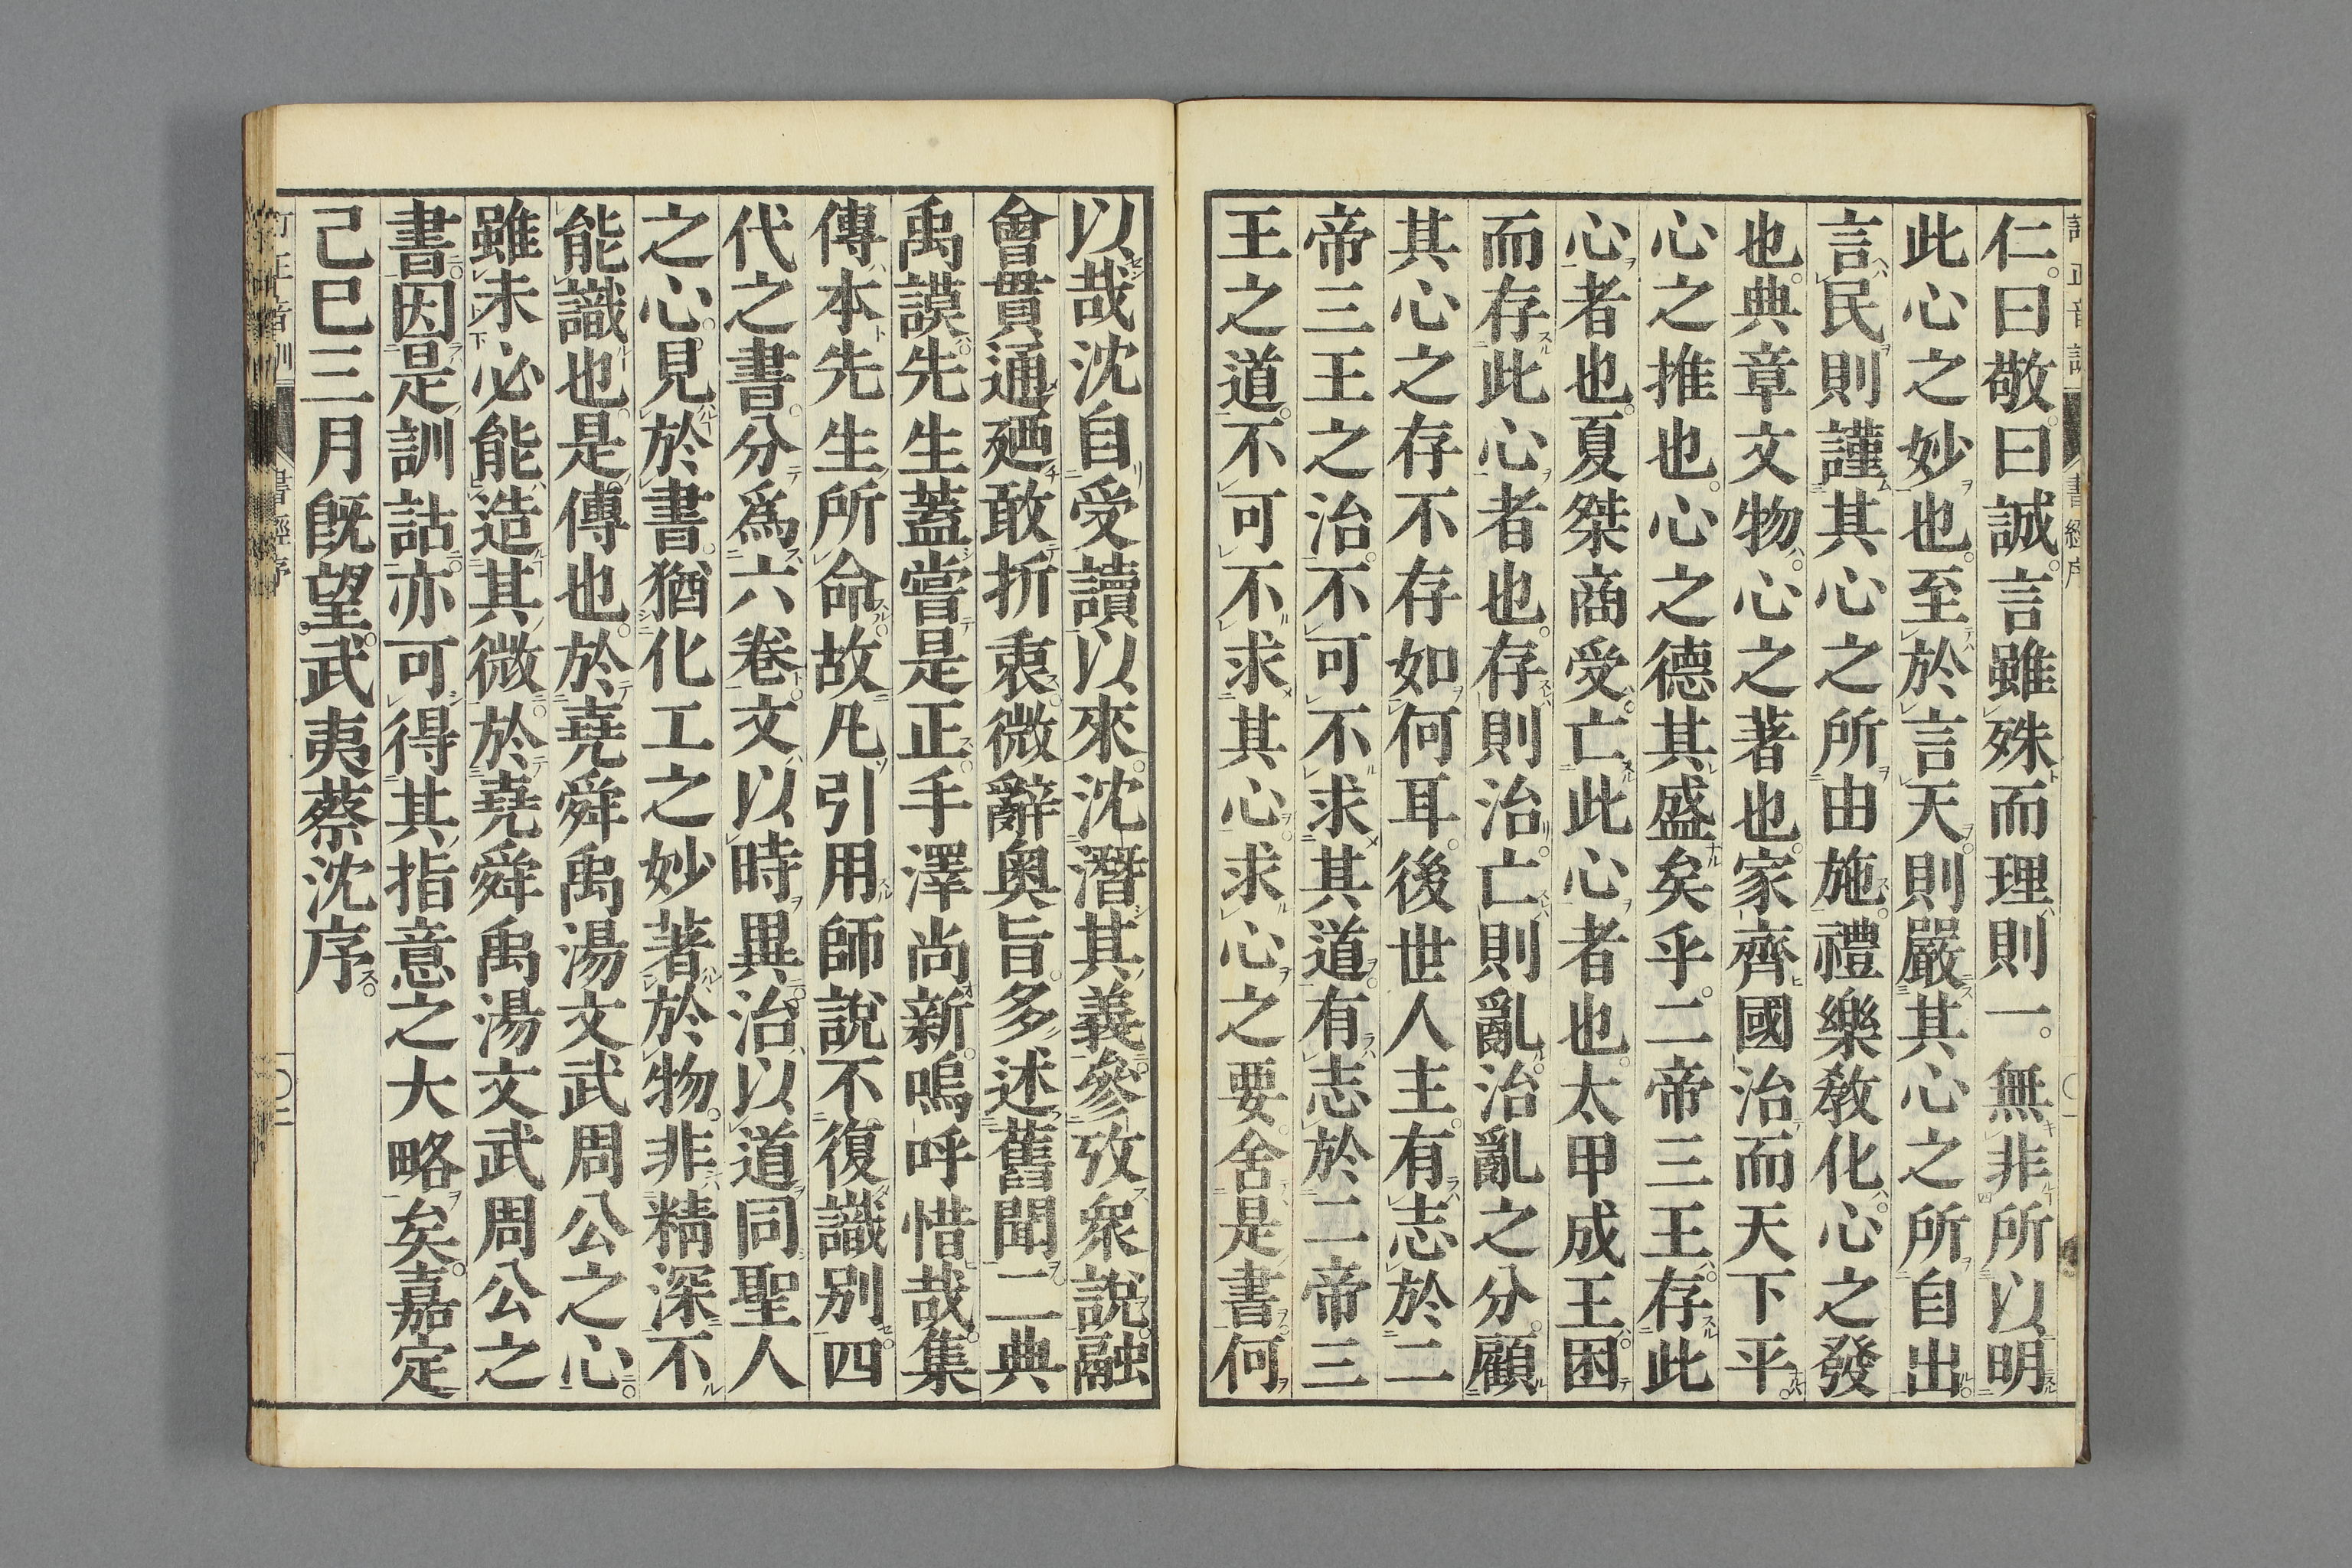 仁。曰敬。曰誠。言雖殊而理則一。無非所以明
此心之妙也。至於言天則嚴其心之所自出
言民則謹其心之所由施。禮樂敎化。心之發
也。典章文物。心之著也。家齊國治而天下平。
心之推也。心之德其盛矣乎。二帝三王。存此
心者也。夏桀商受。亡此心者也。太甲成王。困
而存此心者也。存則治。亡則亂。治亂之分。顧
其心之存不存如何耳。後世人主。有志於二
帝三王之治。不可不求其道。有志於二帝三
王之道。不可不求其心。求心之要。舍是書。何
以哉。沈自受讀以來。沈潛其義。參攷衆說。融
會貫通。廼敢折衷。微辭奥旨。多述舊聞。二典
禹謨。先生蓋嘗是正。手澤尚新。嗚呼惜哉。集
傳本先生所命。故凡引用師說。不復識別。四
代之書。分爲六卷。文以時異。治以道同。聖人
之心。見於書。猶化工之妙。著於物。非精深不
能識也。是傳也。於堯舜禹湯文武周公之心。
雖未必能造其微。於堯舜禹湯文武周公之
書。因是訓詁。亦可得其指意之大略矣。嘉定
己巳三月旣望。武夷蔡沈序。